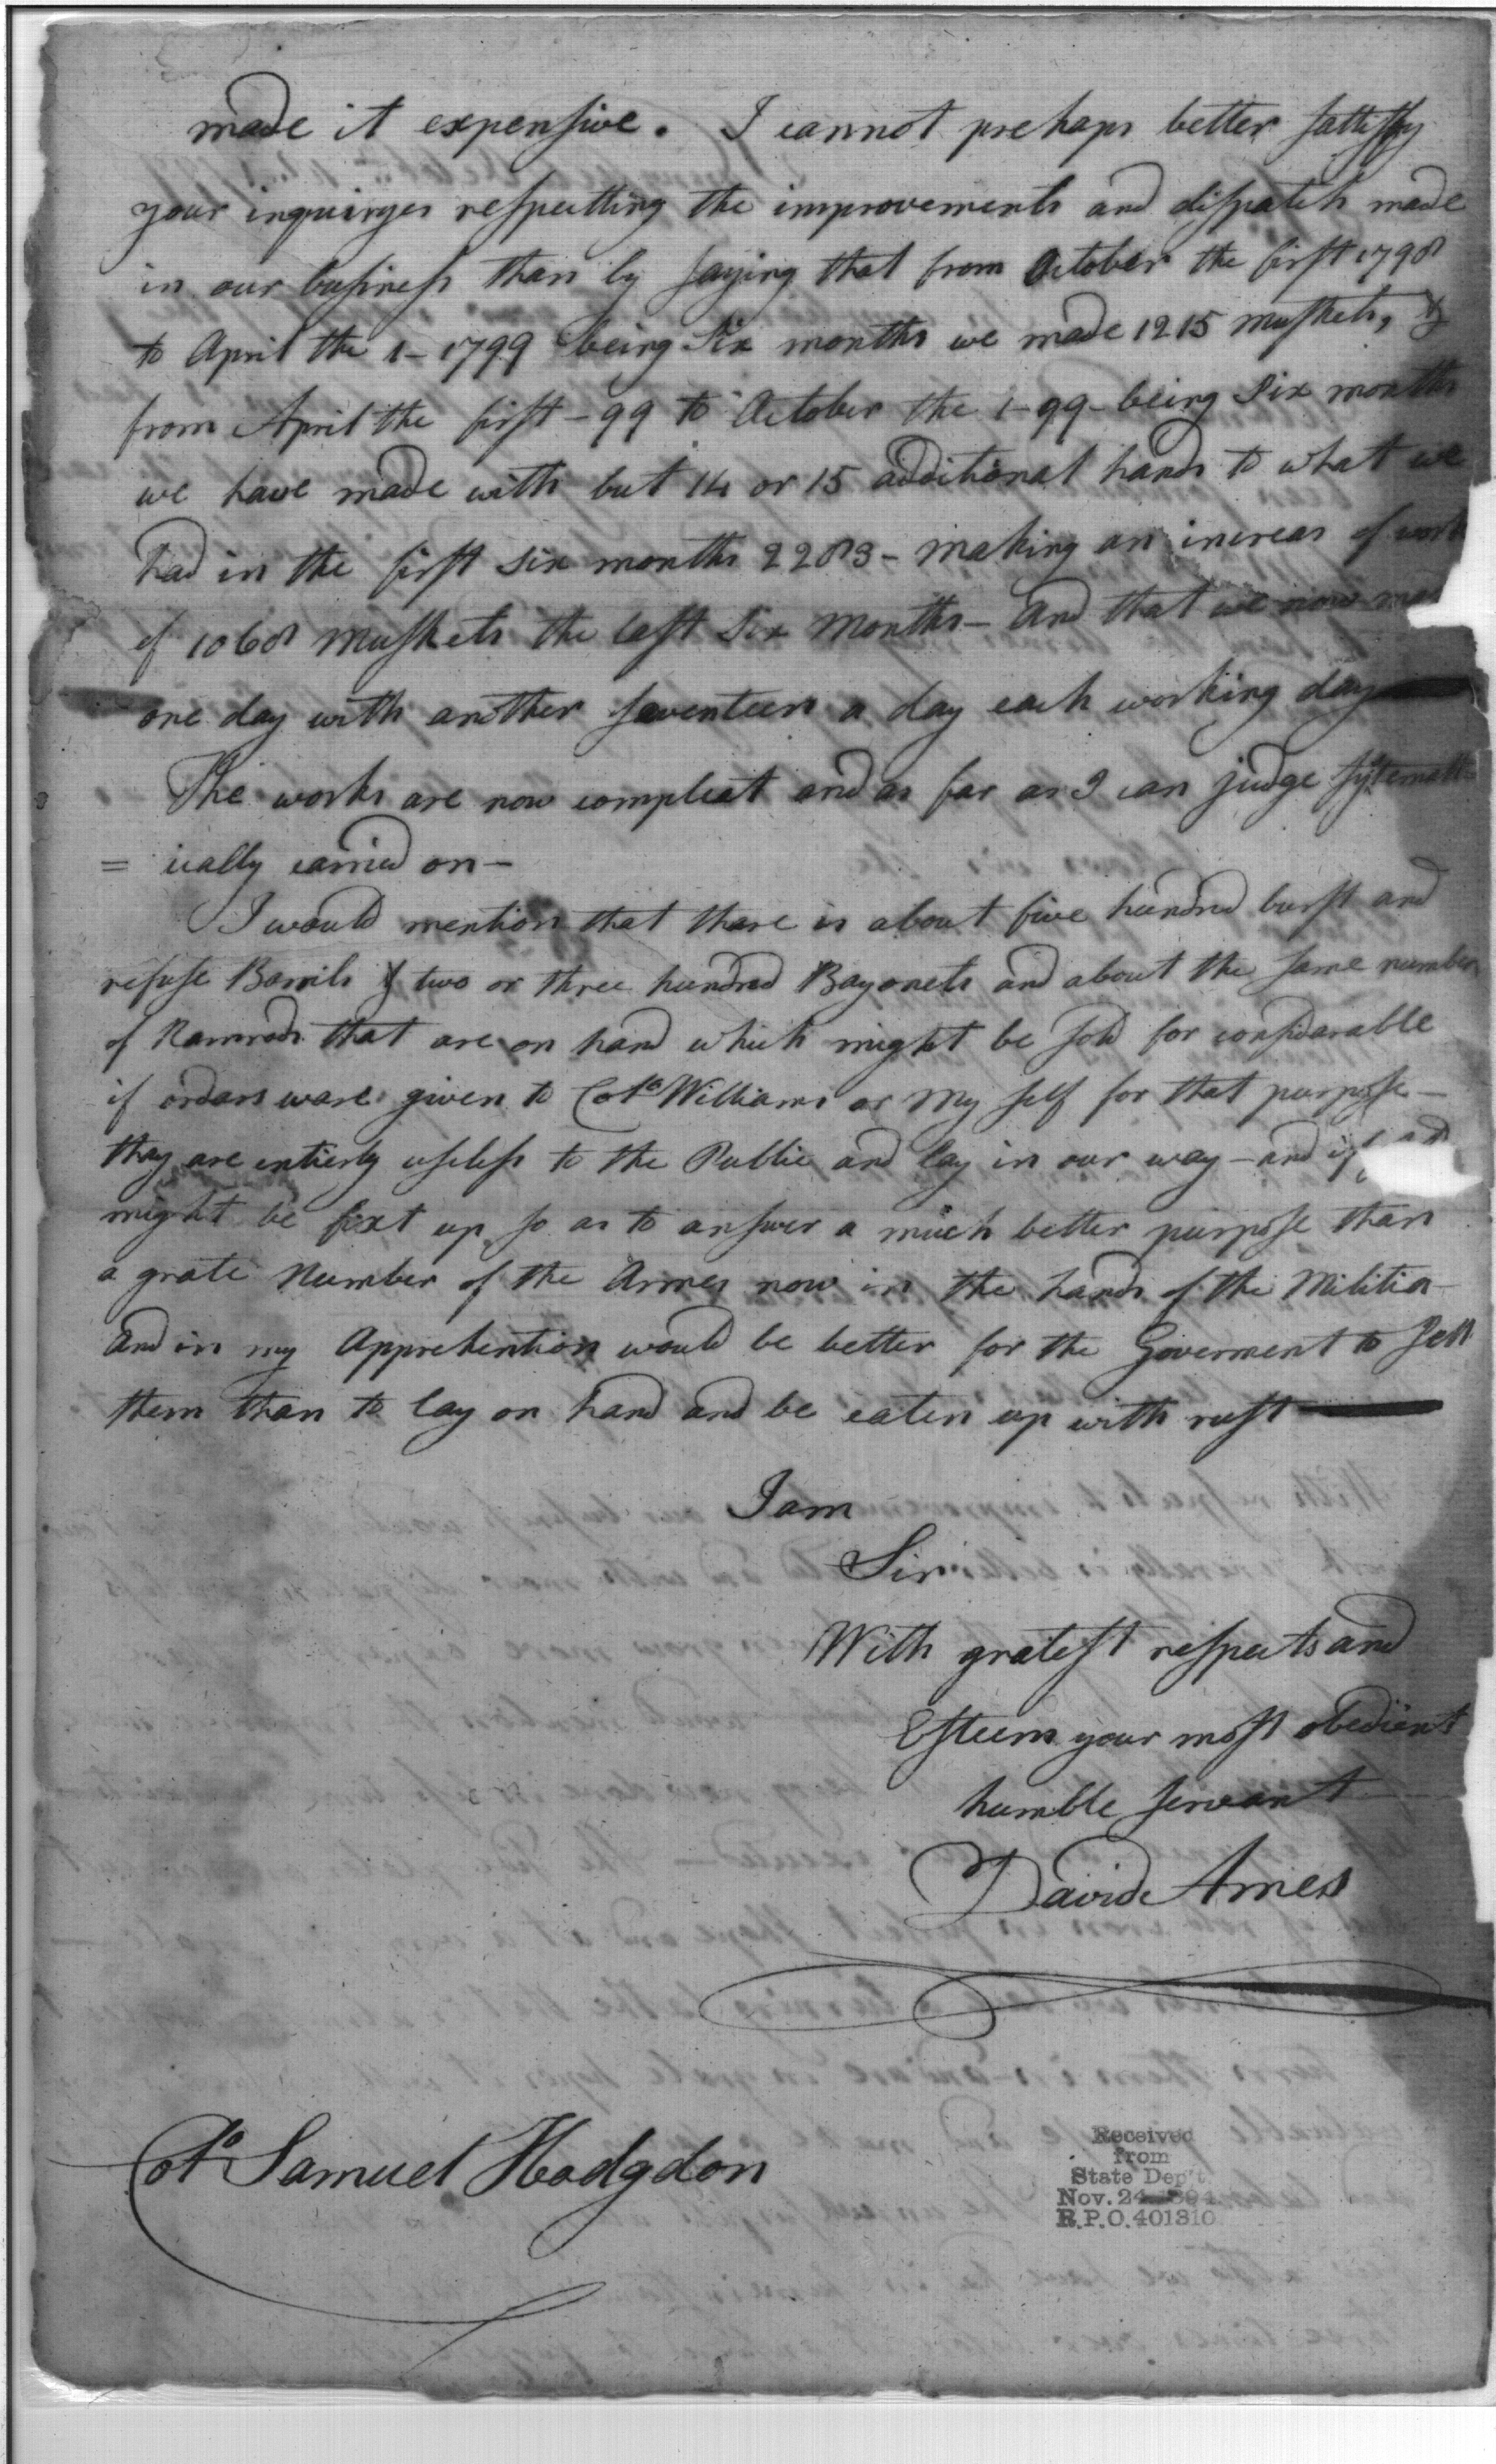 made it expensive. I cannot prehaps better sattisfy
your inquirys respectting the improvements and dispatch made
in our business than by saying that from October the first 1798
to April the 1 - 1799 being Six months we made 1215 muskets, &
from April the first - 99 to October the 1 - 99 - being Six months
we have made with but 14 or 15 additional hands to what we
had in the first six months 2283 - making an increas of work
of 1068 muskets the last Six Months - And that we now
one day with another seventeen a day each working day
The works are now compleat and as far as I can judge systematt=
= ically carried on -
I would mention that thare is about five hundred burst and
refuse Barrils & two or three hundred Bayonets and about the same number
of Ramrods that are on hand which might be sold for considarable
if ordars ware given to Colo. Williams or my self for that purpose -
thay are entierly useless to the Public and lay in our way - and if
might be fixt up so as to answer a much better purpose than
a grate Number of the Armes now in the hands of the Militia
And in my Apprehention would be better for the Goverment to Sell
them than to lay on hand and be eaten up with rust
I am
Sir
With gratest respects and
Esteem your most obedient
humble servant
David Ames
Colo. Samuel Hodgdon
Received
from
State Dep't.
Nov. 24 1894
R.P.O. 401310